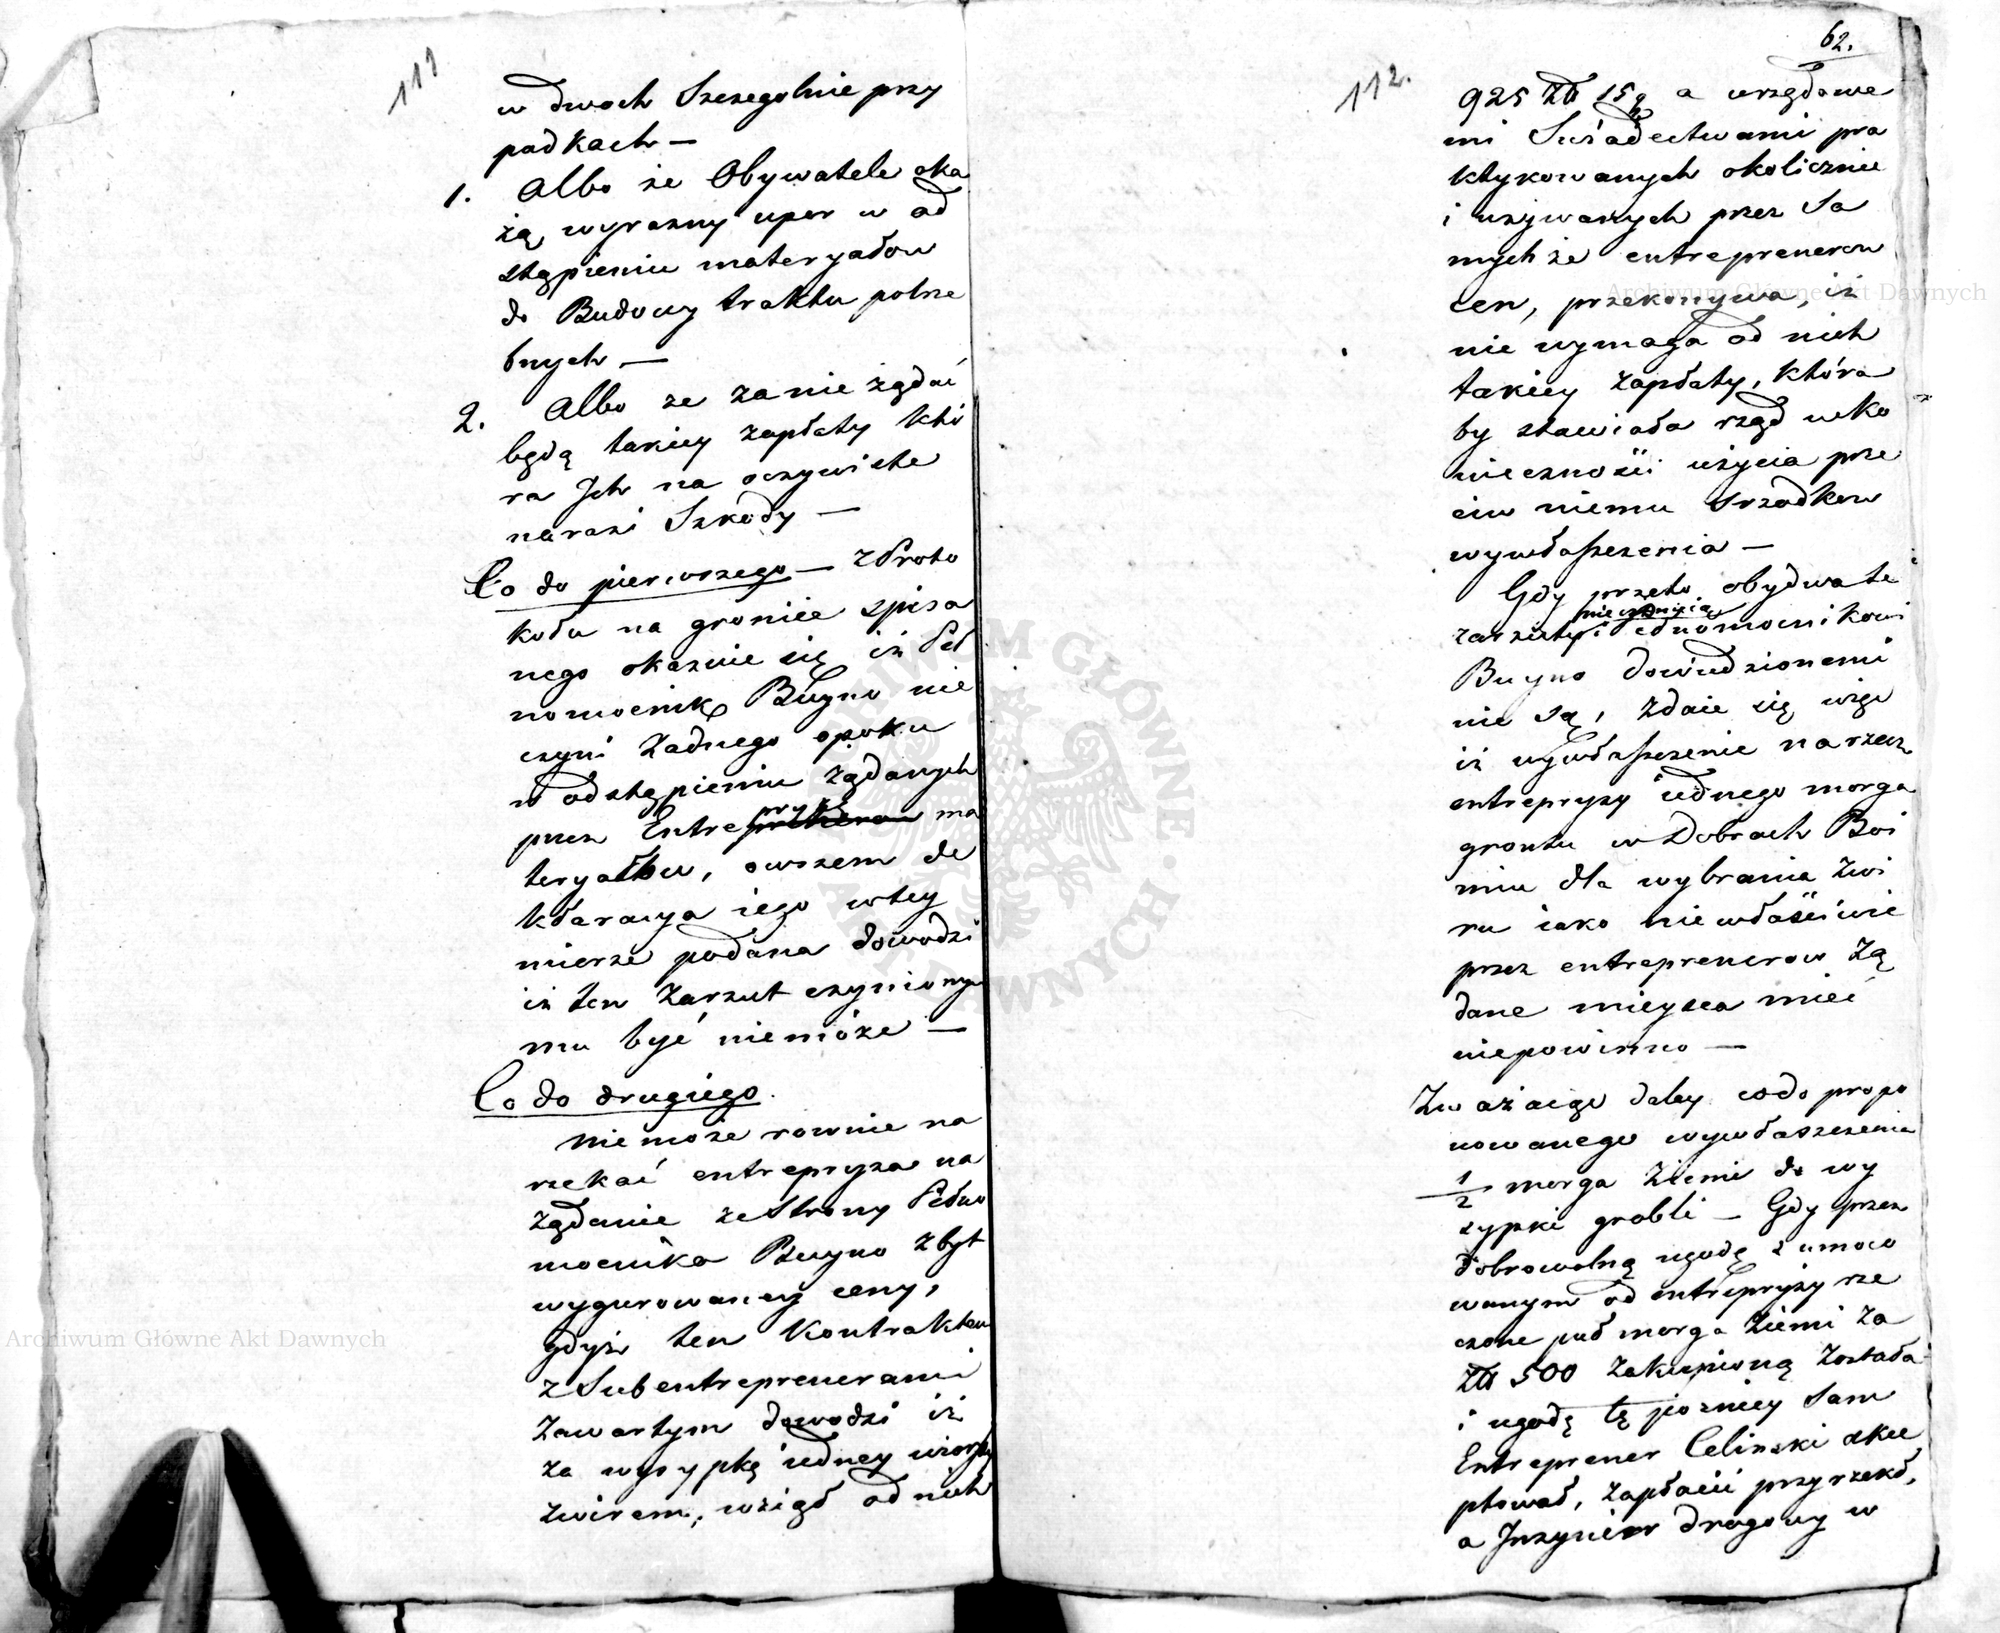 111
w dwoch Szczegolnie przy
padkach —
1. Albo że Obywatele oka
żą wyrazny upor w od
stąpieniu materyałow
do Budowy traktu potrze
bnych —
2. Albo ze zanie żądać
będą takiey zapłaty któ
ra Jch na oczywiste
narazi Szkody —
Co do pierwszego — z Proto
kołu na gróncie spisa
nego okazuie się iż Peł
nomocnik Buyno nie
czyni żadnego oporu
w odstąpieniu żądanych
przez Entrepryzę ma
teryałow, owszem de
klaracya iego wtey
mierze podana dowodzi
iż ten Zarzut czyniony
mu być niemóże —
Co do drugiego.
Niemoże rownie na
rzekać entrepryza na
żądanie ze Strony Pełno
mocnika Buyno zbyt
wygurowaney ceny,
gdyż ten Kontraktem
z Subentreprenerami
Zawartym dowodzi iż
za wysypkę iedney wiorsty
żwirem, wziął od nich
62.
112.
925 Zł 15 gr a urzędowe
mi Swiadectwami pra
ktykowanych okolicznie
i używanych przez Sa
mychże entreprenerow
cen, przekonywa, iż
nie wymaga od nich
takiey zapłaty, która
by stawiała rząd w ko
nieczności użycia prze
ciw niemu srzodkow
wywłaszczenia —
Gdy przeto obydwa te
zarzuty Pełnomocnikowi
Buyno dowiedzionemi
nie są, Zdaie się więc
iż wywłaszczenie na rzecz
entrepryzy iednego morga
gróntu w Dobrach Boi
miu dla wybrania żwi
ru iako niewłaściwie
przez entreprenerow żą
dane mieysca mieć
niepowinno —
Zważaiąc daley co do propo
nowanego wywłaszczenia
1/2 morga Ziemi do wy
sypki grobli — Gdy przez
dobrowolną ugodę z umoco
wanym od entrepryzy rze
czone puł morga Ziemi za
Zł 500 zakupioną została
i ugodę tę pozniey Sam
Entreprener Celinski akce
ptował, zapłacić przyrzekł,
a Jnzynier drogowy w